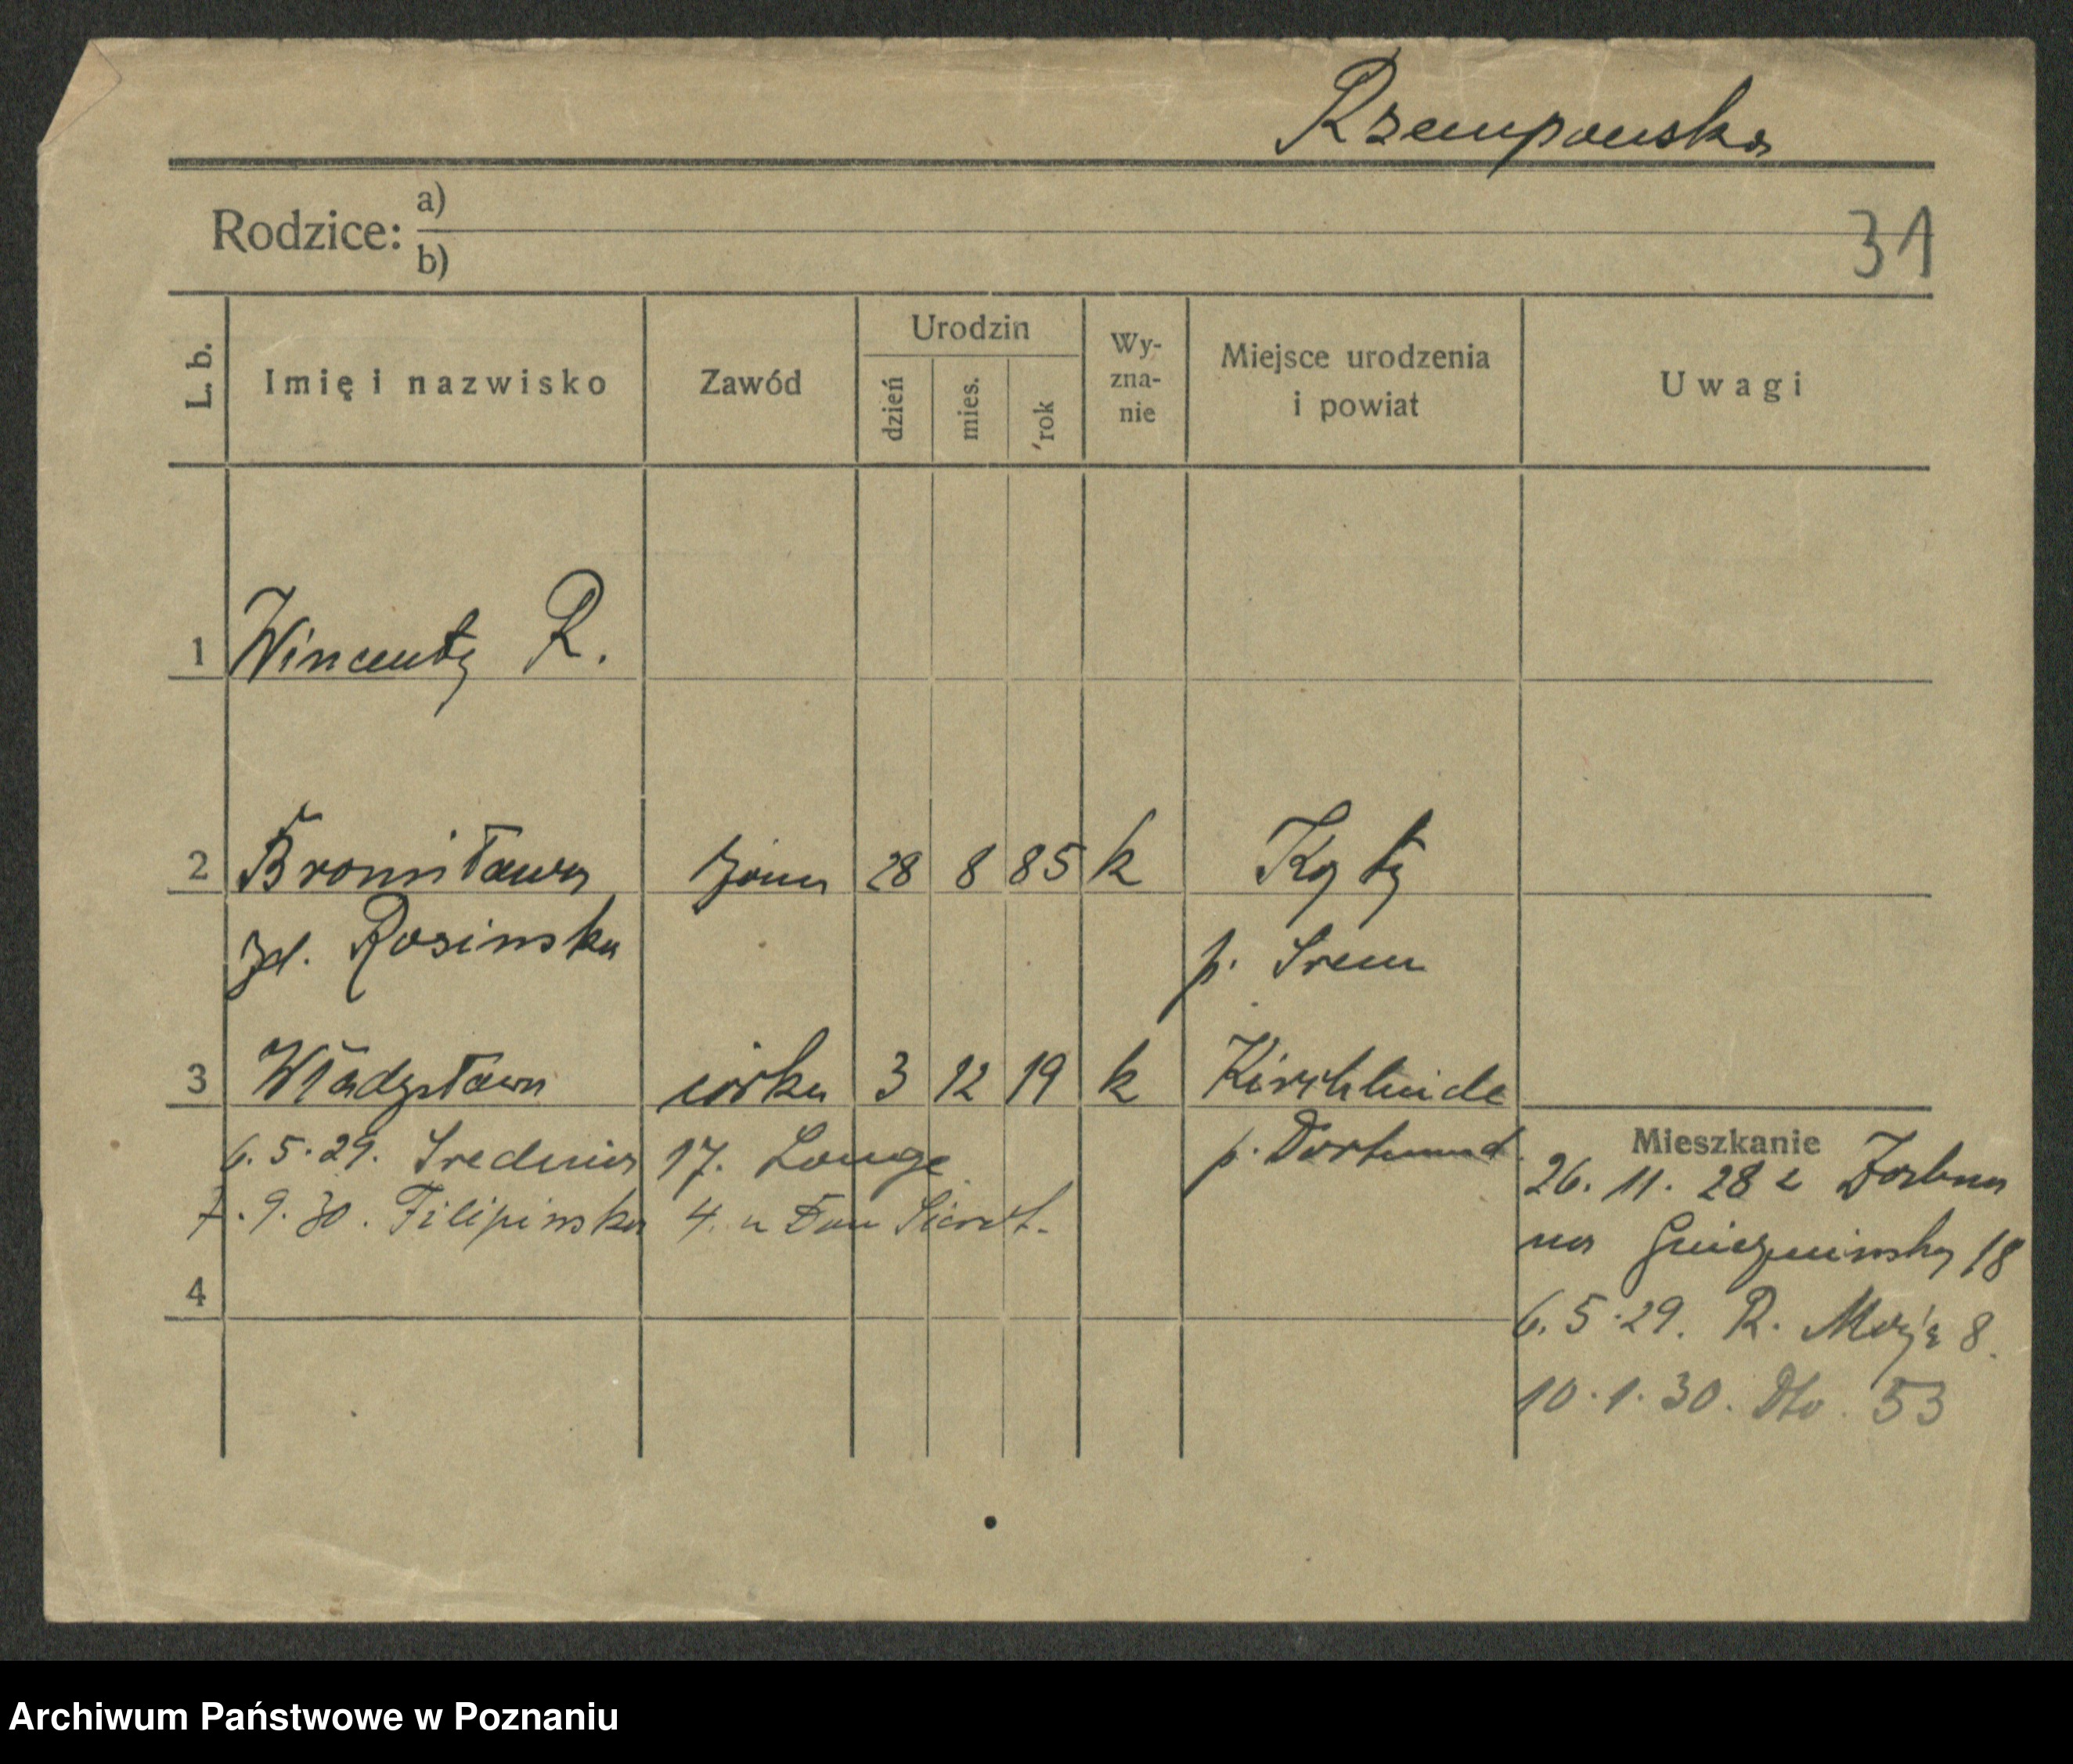 Rzempowska
Rodzice: a)
b)
31
L. b. Imię i nazwisko Zawód Urodzin dzień mies. rok Wy-zna-nie Miejsce urodzenia i powiat Uwagi
1 Wincenty R.
2 Bronisława żona 28 8 85 k
zd. Rosinska p. Srem
3 Władysława córka 3 12 19 k Kirchlinde
p. Dortmund
6. 5. 29. Srednia 17. Lange
7. 9. 30. Filipinska 4. u
4
Mieszkanie
26. 11. 28 z
na Gniezninsky 18
6. 5. 29. R. 8.
10. 1. 30. Dto. 53
Archiwum Państwowe w Poznaniu